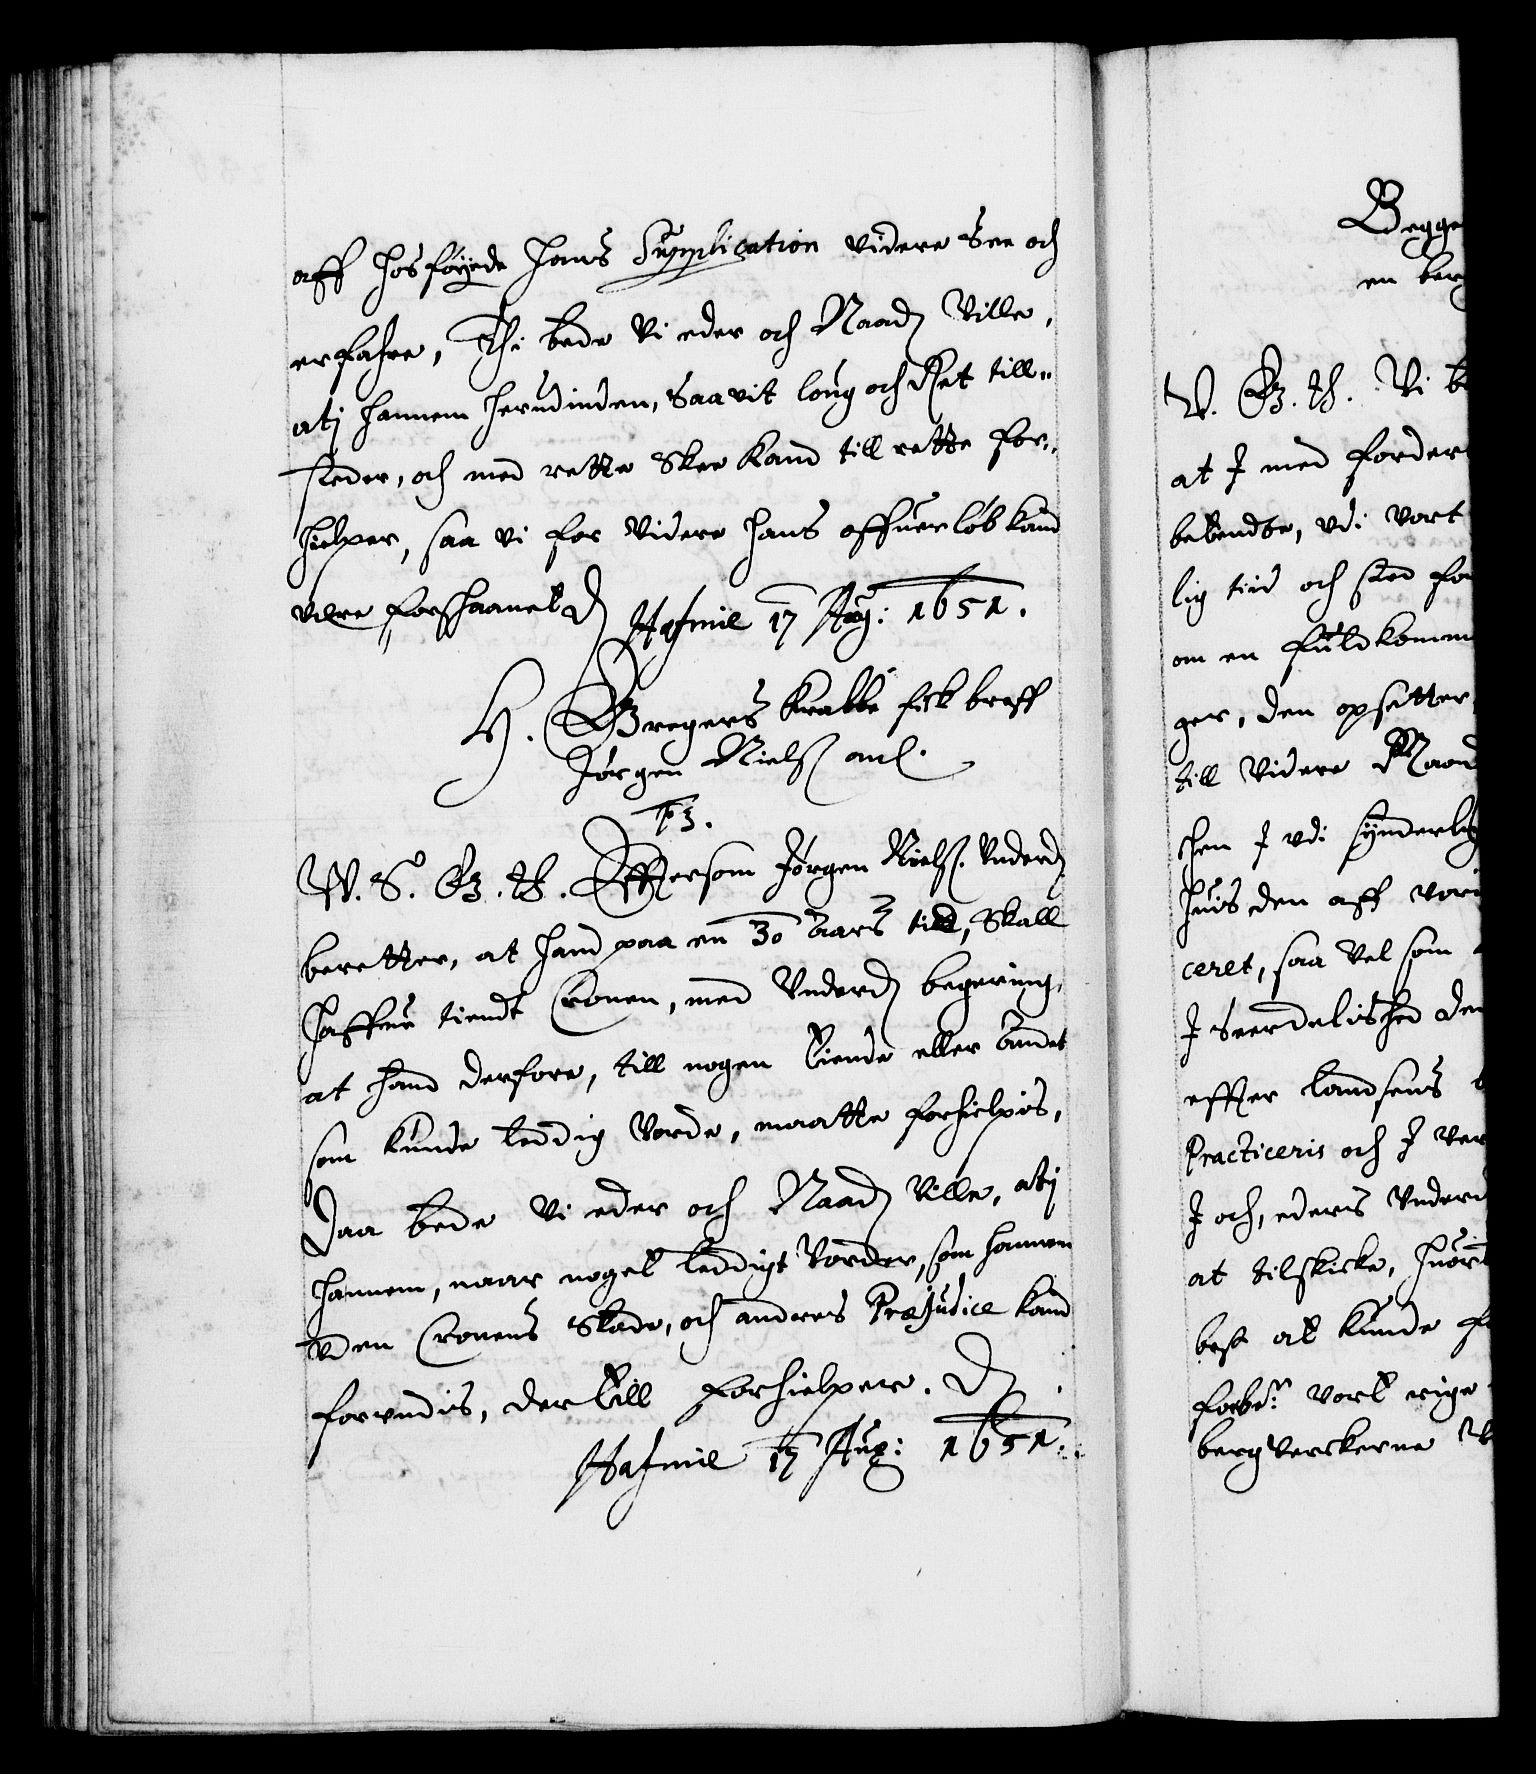 aff hosføyede hans Supplication videre See och
erfahre, Thi bede Vi eder och Naad. Ville,
atj hannem herudinden, Saavit loug och Ret till-
steder, och med rette Skee Kand till rette for-
hielper, saa vi for Videre hans offuerløb kand
vere forskaanet D
Hafniæ 17 Aug: 1651.
H. Gregers Krabbe fick breff
Jørgen Niels. anl.
p3.
W. S. G. T. Effersom Jørgen Niels. Underd.
beretter, at hand paa en 30 Aars tid, Skall
haffue tiendt Cronen, med Underd. begering,
at hand derfore, till nogen tiende eller andet
som kunde leddig Vorde, maatte forhielpis,
Daa bede Vi eder och Naad. Ville, atj
hannem, naar noget leddigt Vorder, som hannem
uden Cronens Skade, och andres Præjudice kand
forundis, der till forhielper. D.
Hafniæ 17 Aug: 1651.
Begge
en berg
V. G. T. Vi be
at J med forder
bekendte, udi vort
lig tiid och sted for
om en fuldkomm
ger, den opsetter,
till Videre Naad
hen J udi synderlig
huis den aff vori
ceret, saa vel som
J Seerdelished den
effter landsens b
Practiceris och J ver
J och, ederis Underd
at tilskicke, huort
best at kunde fo
forbe.n vort rige
berg Verckerne V